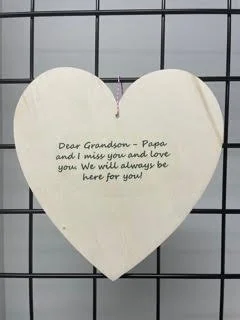 Dear Grandson - Papa
and I miss you and love
you. We will always be
here for you!